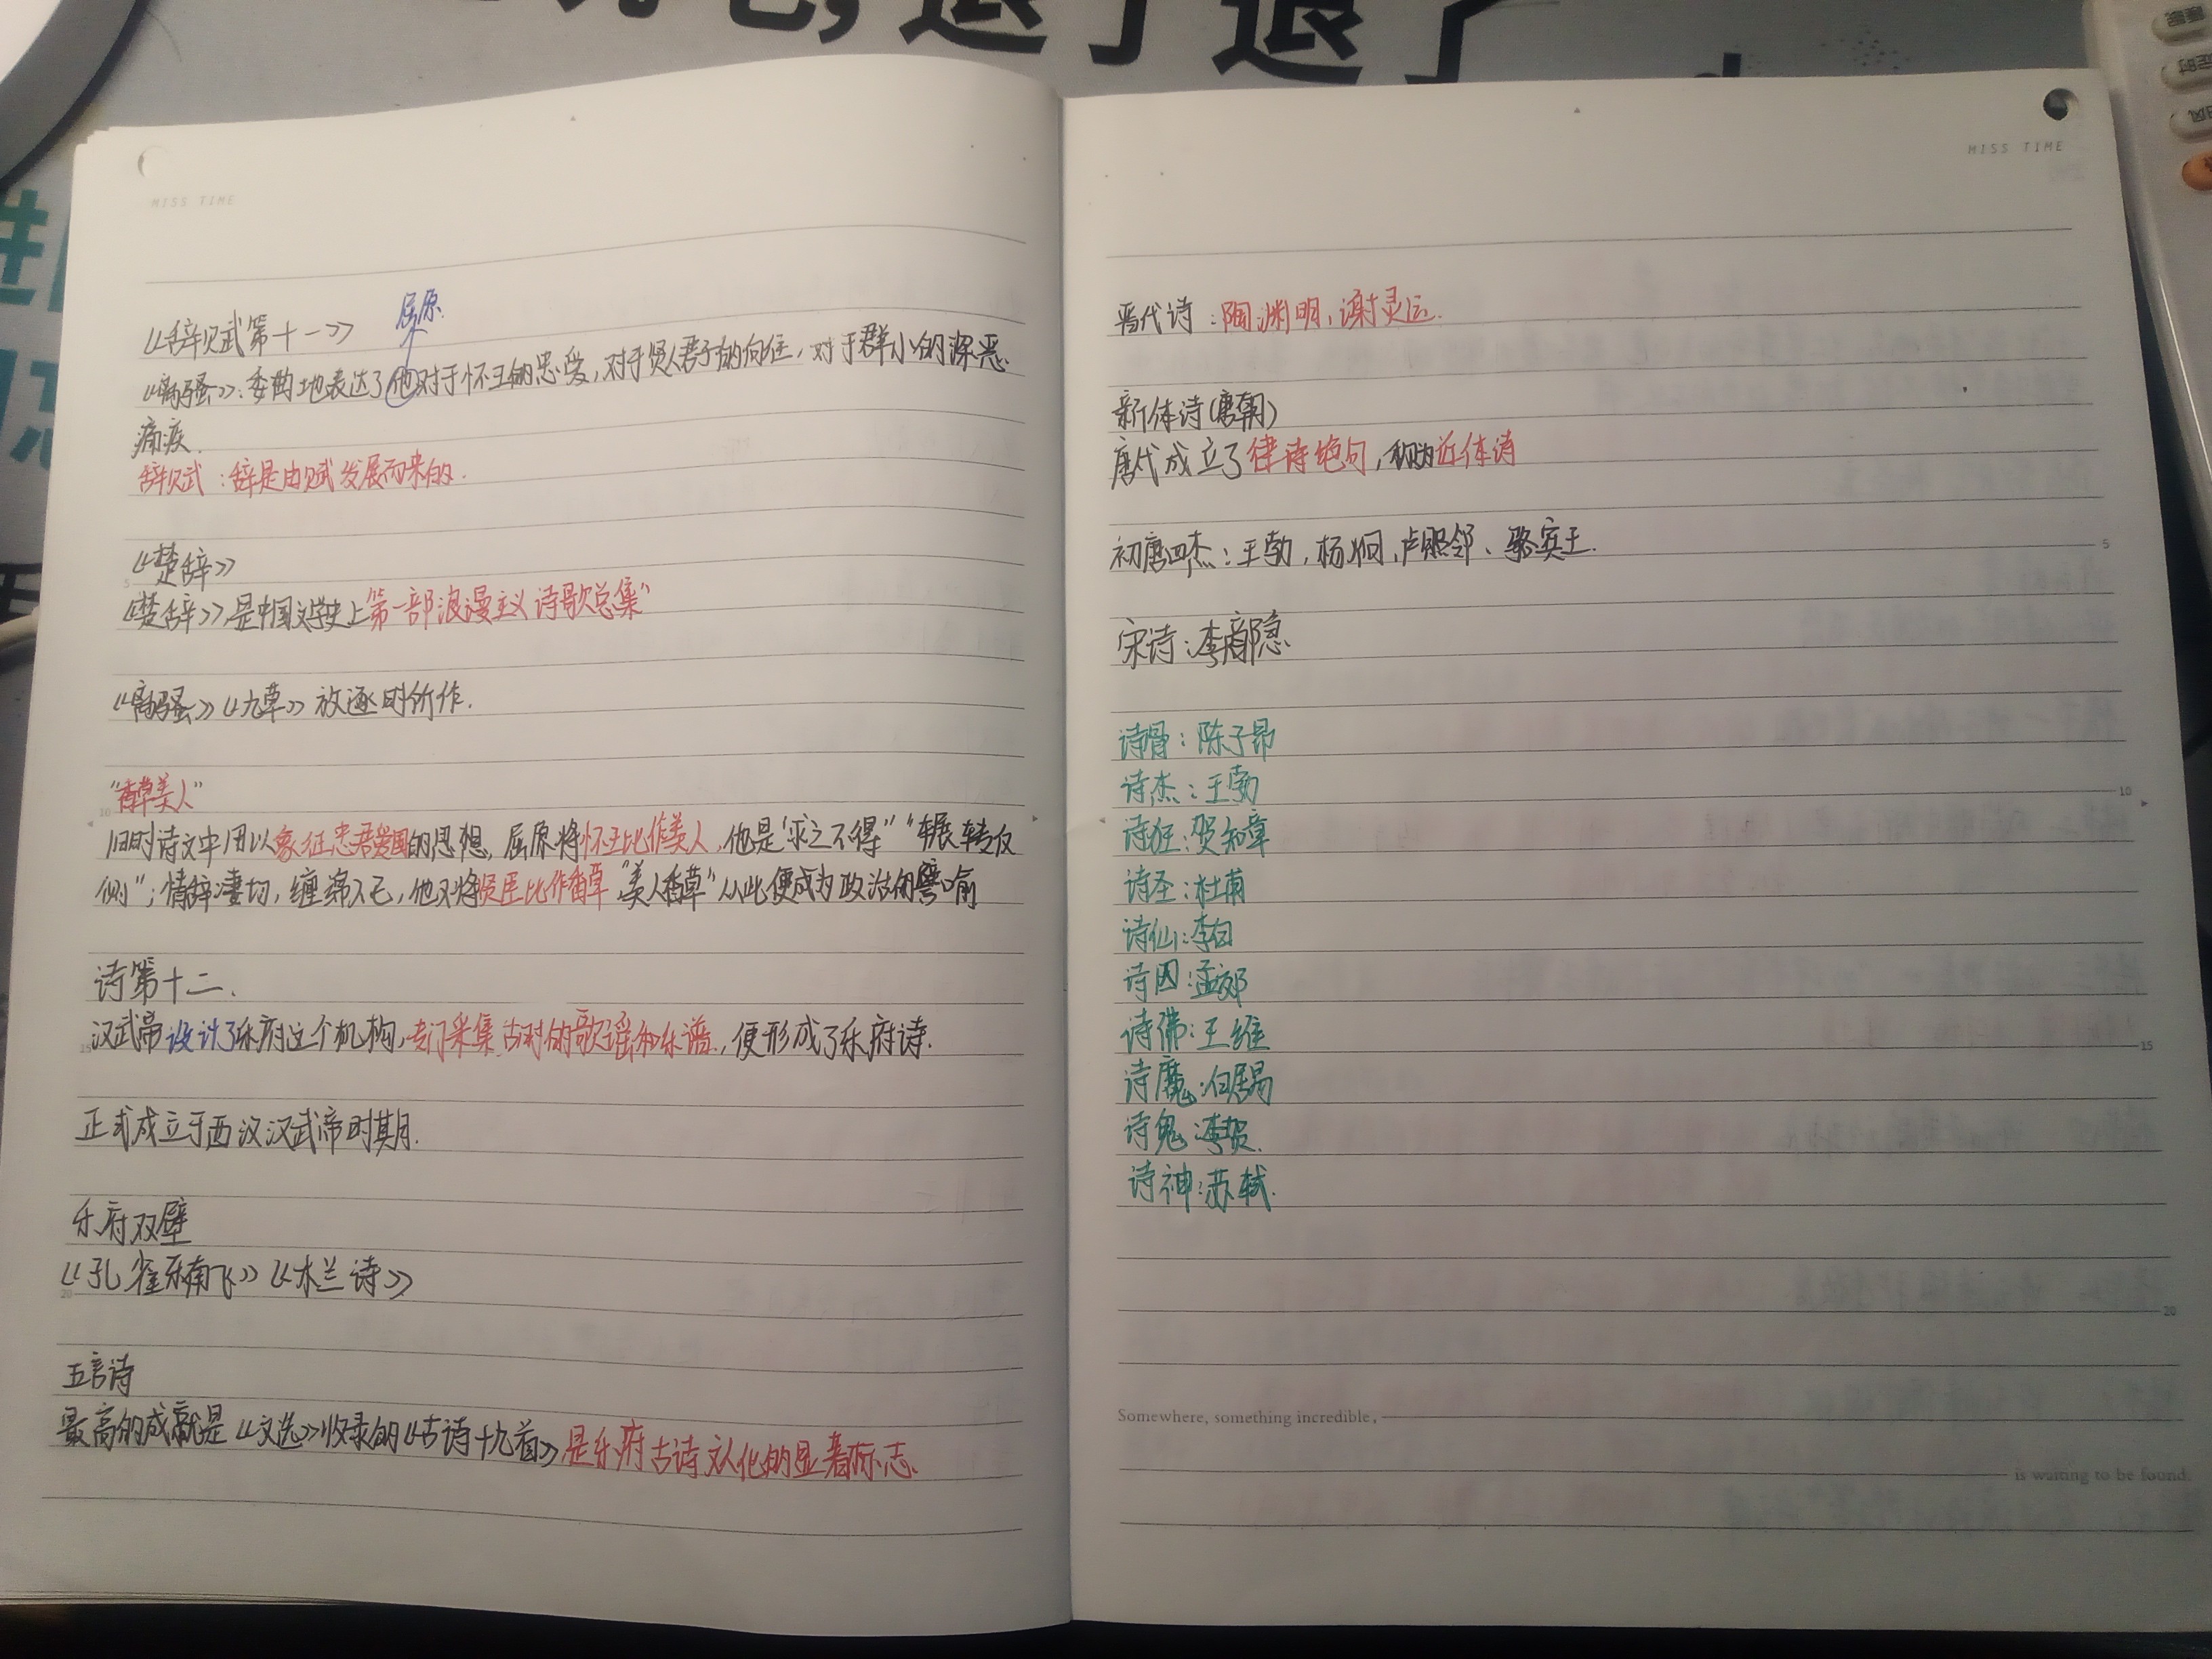 MISS TIME
《辞赋第十一》
屈原
《离骚》:委婉地表达了他对于怀王的忠爱,对于贤人君子的向往,对于群小的深恶
痛疾.
辞赋:辞是由赋发展而来的.
《楚辞》
《楚辞》,是中国文学史上第一部浪漫主义诗歌总集"
《离骚》《九章》放逐时所作.
"香草美人"
旧时诗文中用以象征忠君爱国的思想,屈原将怀王比作美人,他是"求之不得""辗转反
侧";情辞凄切,缠绵不已,他又将贤臣比作香草"美人香草"从此便成为政治的譬喻
诗第十二.
汉武帝设计了乐府这个机构,专门采集古时的歌谣和乐谱.,便形成了乐府诗.
正式成立于西汉汉武帝时期.
乐府双壁
《孔雀东南飞》《木兰诗》
五言诗
最高的成就是《文选》收录的《古诗十九首》是乐府古诗文人化的显著标志.
MISS TIME
晋代诗:陶渊明,谢灵运.
新体诗(唐朝)
唐代成立了律诗绝句,称为近体诗
初唐四杰:王勃,杨炯,卢照邻、骆宾王.
宋诗:李商隐.
诗骨:陈子昂
诗杰:王勃
诗狂:贺知章
诗圣:杜甫
诗仙:李白
诗囚:孟郊
诗佛:王维
诗魔:白居易
诗鬼:李贺.
诗神:苏轼.
Somewhere, something incredible,
is waiting to be found.